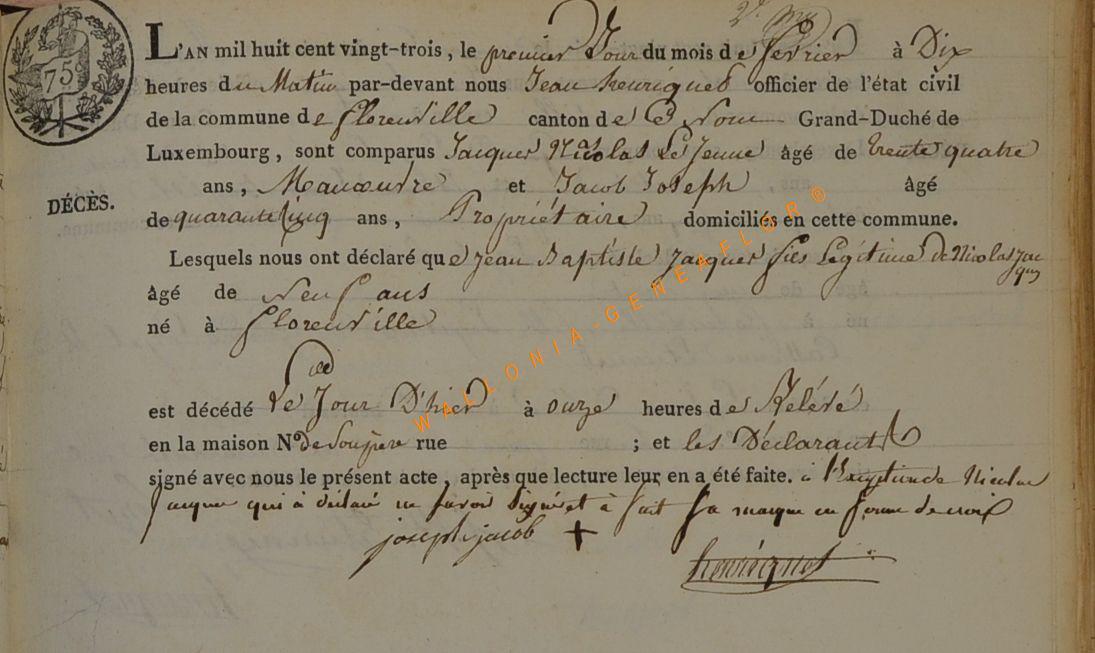 75c
L'AN mil huit cent vingt-trois, le premier Jour du mois de fevrier à Dix
heures du Matin par-devant nous Jean henriquet officier de l'état civil
de la commune de florenville canton de Ce Nom Grand-Duché de
Luxembourg, sont comparus Jacques Nicolas Le Jeune âgé de trente quatre
DÉCÈS.
ans, Manoeuvre et Jacob Joseph âgé
de quarante cinq ans, Propriétaire domiciliés en cette commune.
Lesquels nous ont déclaré que Jean Baptiste Jacques fils Légitime de Nicolas Jacques
âgé de Neuf ans
né à florenville
est décédé Le Jour D'hier à onze heures de Reléré
en la maison No de Son père rue ; et les Déclarants
signé avec nous le présent acte, après que lecture leur en a été faite. à l'Exception de Nicolas
Jacques qui à déclaré ne savoir Signé et à fait Sa marque en forme de croix
joseph jacob +
WALLONIA-GENEAFLOR®